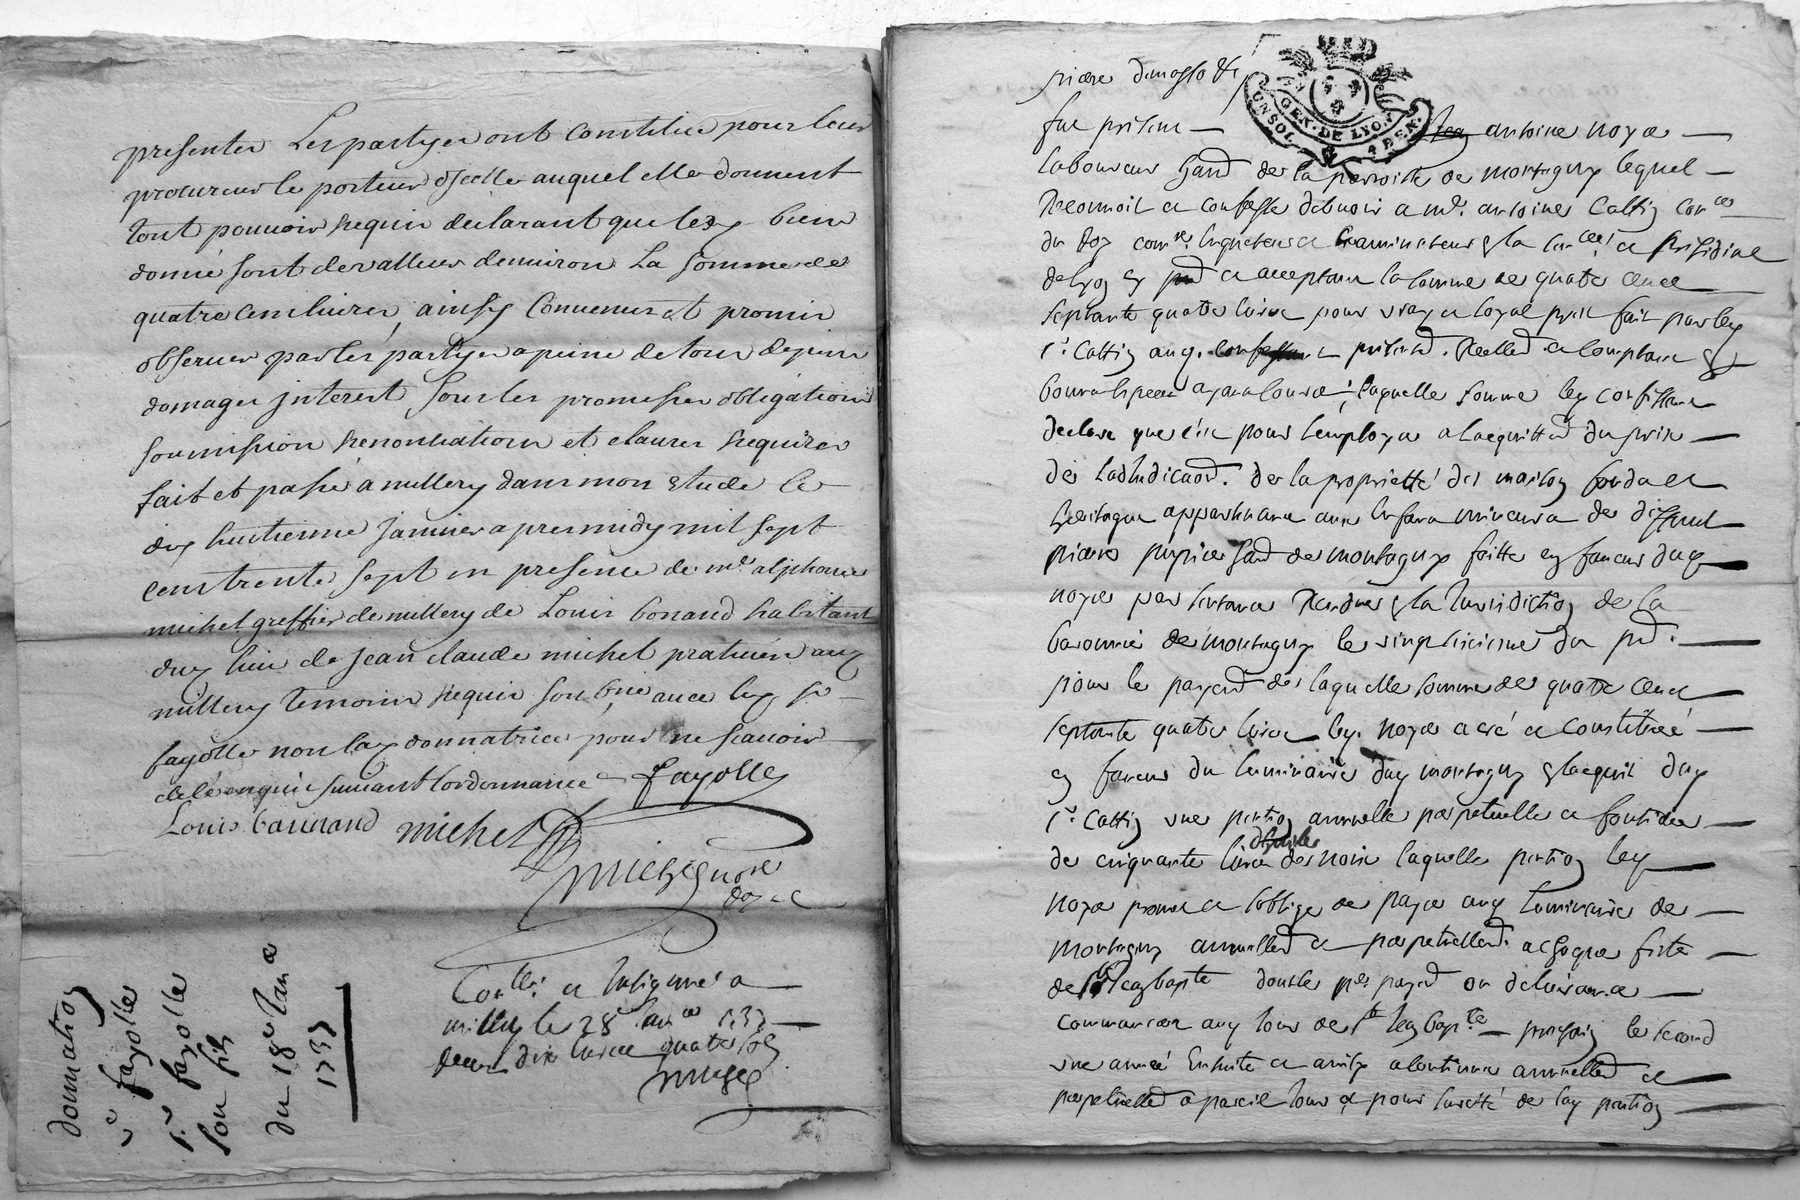 presenter Les partyes ont constitué pour leur
procureur le porteur d'jcelle auquel elle donnent
tout pouvoir requis declarant que lesd bien
donné sont de valleur d'environ La somme de
quatre cens livres, ainsy Convenus et promis
observer par les partyes a peine de tous depens
domages jnterest sous les promesses obligations
soumission renontiations et clauses requises
fait et passé a millery dans mon etude le
dix huitieme janvier apres midy mil sept
cens trente sept en presence de mre alphonse
michel greffier de millery de Louis bonand habitant
dud lieu de jean claude michel praticien aud
millery temoins requis soubné avec led sr
fayolle non lad donnatrice pour ne scavoir
de ce enquis suivant lordonnance Fayolle
Louis bannand michel
michel nore
royal
Conllé et Insignué a
millery le 28e janer 1737
deux dix livres quatre sols
michel
donnation
ve fayolle
a sr fayolle
son fils
du 18e Janer
1737
GEN. DE LYON
UN SOL 4 DEN.
fut present antoine noyer
laboureur hand de la parroisse de montagny lequel
Reconnoit et confesse debvoir a mr. antoine Cattin coner
du Roy comre Enqueteur et Examinateur en la senéé et presidial
de Lyon cy pnt et acceptant la somme de quatre cent
septante quatre livres pour vray et loyal prest fait par led
sr Cattin aud. presentt. Reellet et comptant
laquelle somme led confessant
declare que c'est pour lemployer a lacquittet du prix
de ladjudicaon. de la proprietté des maison fonds et
heritages appartenant aux Enfans mineurs de deffunt
pierre hand de montagny faitte en faveur dud
noyer par sentence Rendue en la Jurisdiction de la
baronnie de montagny le vingtsixieme du pnt.
pour le payent de laquelle somme de quatre cent
septante quatre livres led. noyer a créé et constitüé
en faveur du luminaire dud montagny en lacquit dud
sr Cattin une pention annuelle perpetuelle et fonciere
de cinquante livres d'huile de noix laquelle pention led
noyer promet et soblige de payer aud luminaire de
montagny annuellet et perpetuellet. a chaque feste
de st Jean bapte dont le per payet ou delivrance
commancer au jour de st Jean bapte prochain le second
une année Ensuite et ainsy a continuer annuellet et
perpetuellet a pareil jour et pour sureté de lad pention